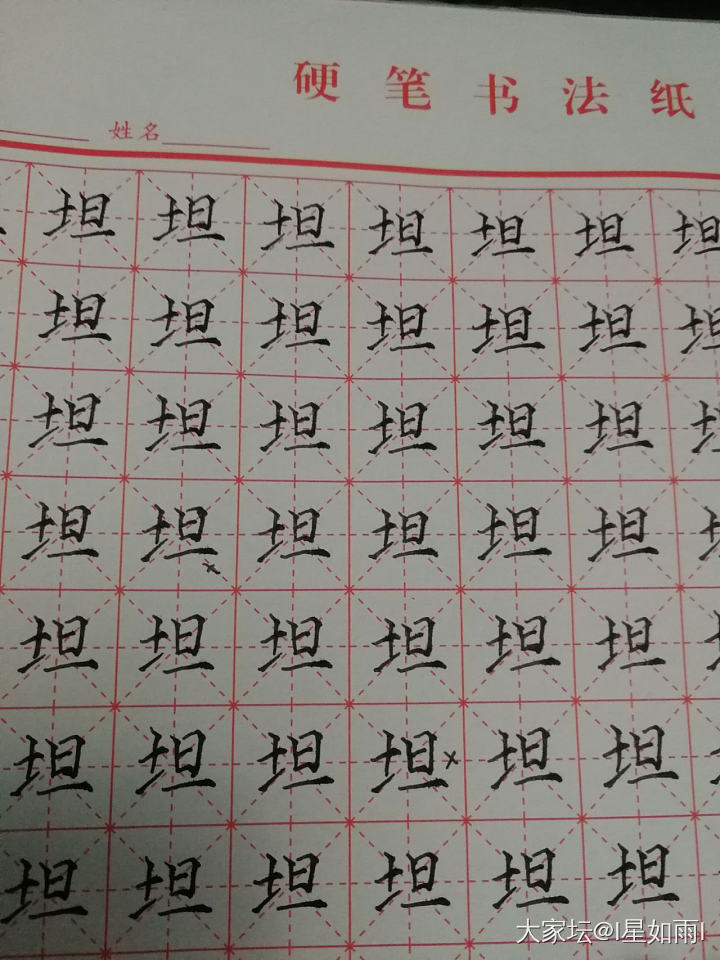 硬笔书法纸
姓名
坦坦坦坦坦坦坦
坦坦坦坦坦坦坦
坦坦坦坦坦坦
坦坦×坦坦坦坦
坦坦坦坦坦坦
坦坦坦坦×坦坦
坦坦坦坦坦坦
大家坛@I星如雨I